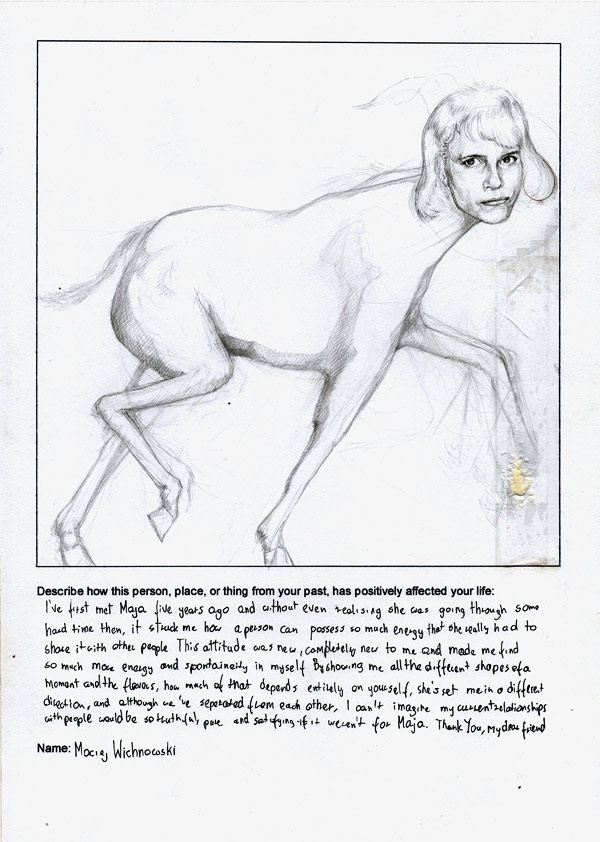 Describe how this person, place, or thing from your past, has positively affected your life:
I've first met Maja five years ago and without even realising she was going through some
hard time then, it struck me how a person can possess so much energy that she really had to
share it with other people This attitude was new, completely new to me and made me find
so much more energy and spontaineity in myself By showing me all the different shapes of a
moment and the flavours, how much of that depends entirely on yourself, she's set me in a different
direction, and although we've separated from each other, I can't imagine my current relationships
with people would be so truthful, pure and satisfying if it weren't for Maja. Thank You, my dear friend
Name: Maciej Wichnowski